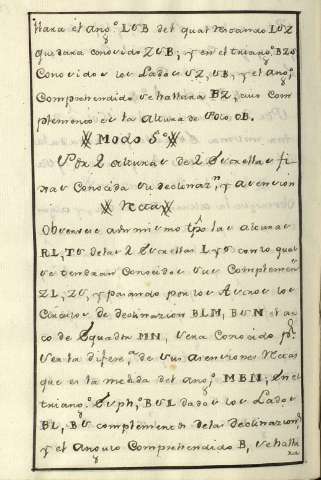 llara el Ang.º LVB del qual restando LVZ
quedara conosido ZVB; y en el triang.º BZV
Conosidos los Lados VZ, VB, y el Ang.º
Comprehendido se hallara BZ, cuio Com
plemento es la Altura de Polo OB.
Modo 5º
Por 2 alturas de 2 Estrellas fi
xas Conosida su declinaz.ⁿ, y asencion
Recta
Observese a un mismo tpō las alturas
RL, TV de las 2 Estrellas L y V con lo qual
se tendran Conosidos sus Complemen.
ZL, ZV, y pasando por los Astros los
Circulos de declinazion BLM, BVN el ar
co de Equador MN, sera Conosido p.r
ser la difere.ª de sus asenciones Rectas
que es la medida del Ang.º MBN; En el
triang.º Esph.º BVL dados los Lados
BL, BV complementos de las declinazion.
y el Angulo Comprehendido B, se halla